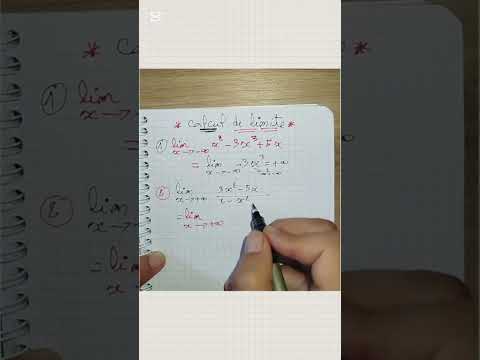 * calcul de limite *
1) lim x² - 3x³ + 5x
x→-∞
= lim -3x³ = +∞
x→-∞
2) lim 3x² - 5x / 1 - x²
x→+∞
= lim
x→+∞